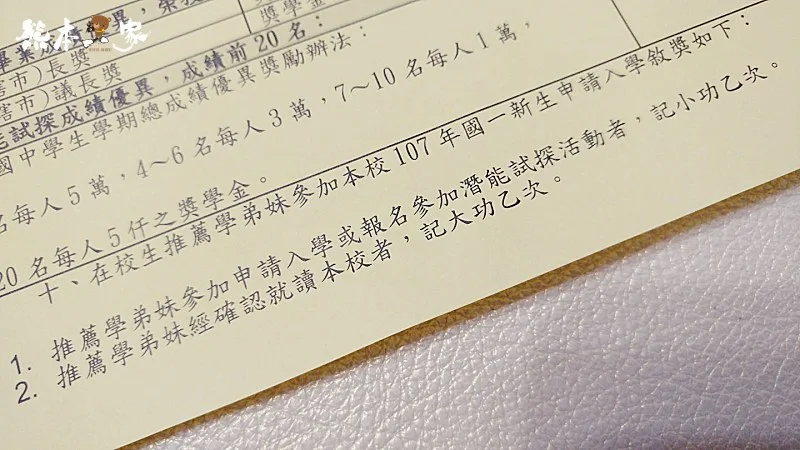 熊本一家
獎學金
市)長獎
轄市)議長獎
能試探成績優異,成績前20名:
國中學生學期總成績優異獎勵辦法:
名每人5萬,4~6名每人3萬,7~10名每人1萬,
20名每人5仟之獎學金。
十、在校生推薦學弟妹參加本校107年國一新生申請入學敘獎如下:
1. 推薦學弟妹參加申請入學或報名參加潛能試探活動者,記小功乙次。
2. 推薦學弟妹經確認就讀本校者,記大功乙次。